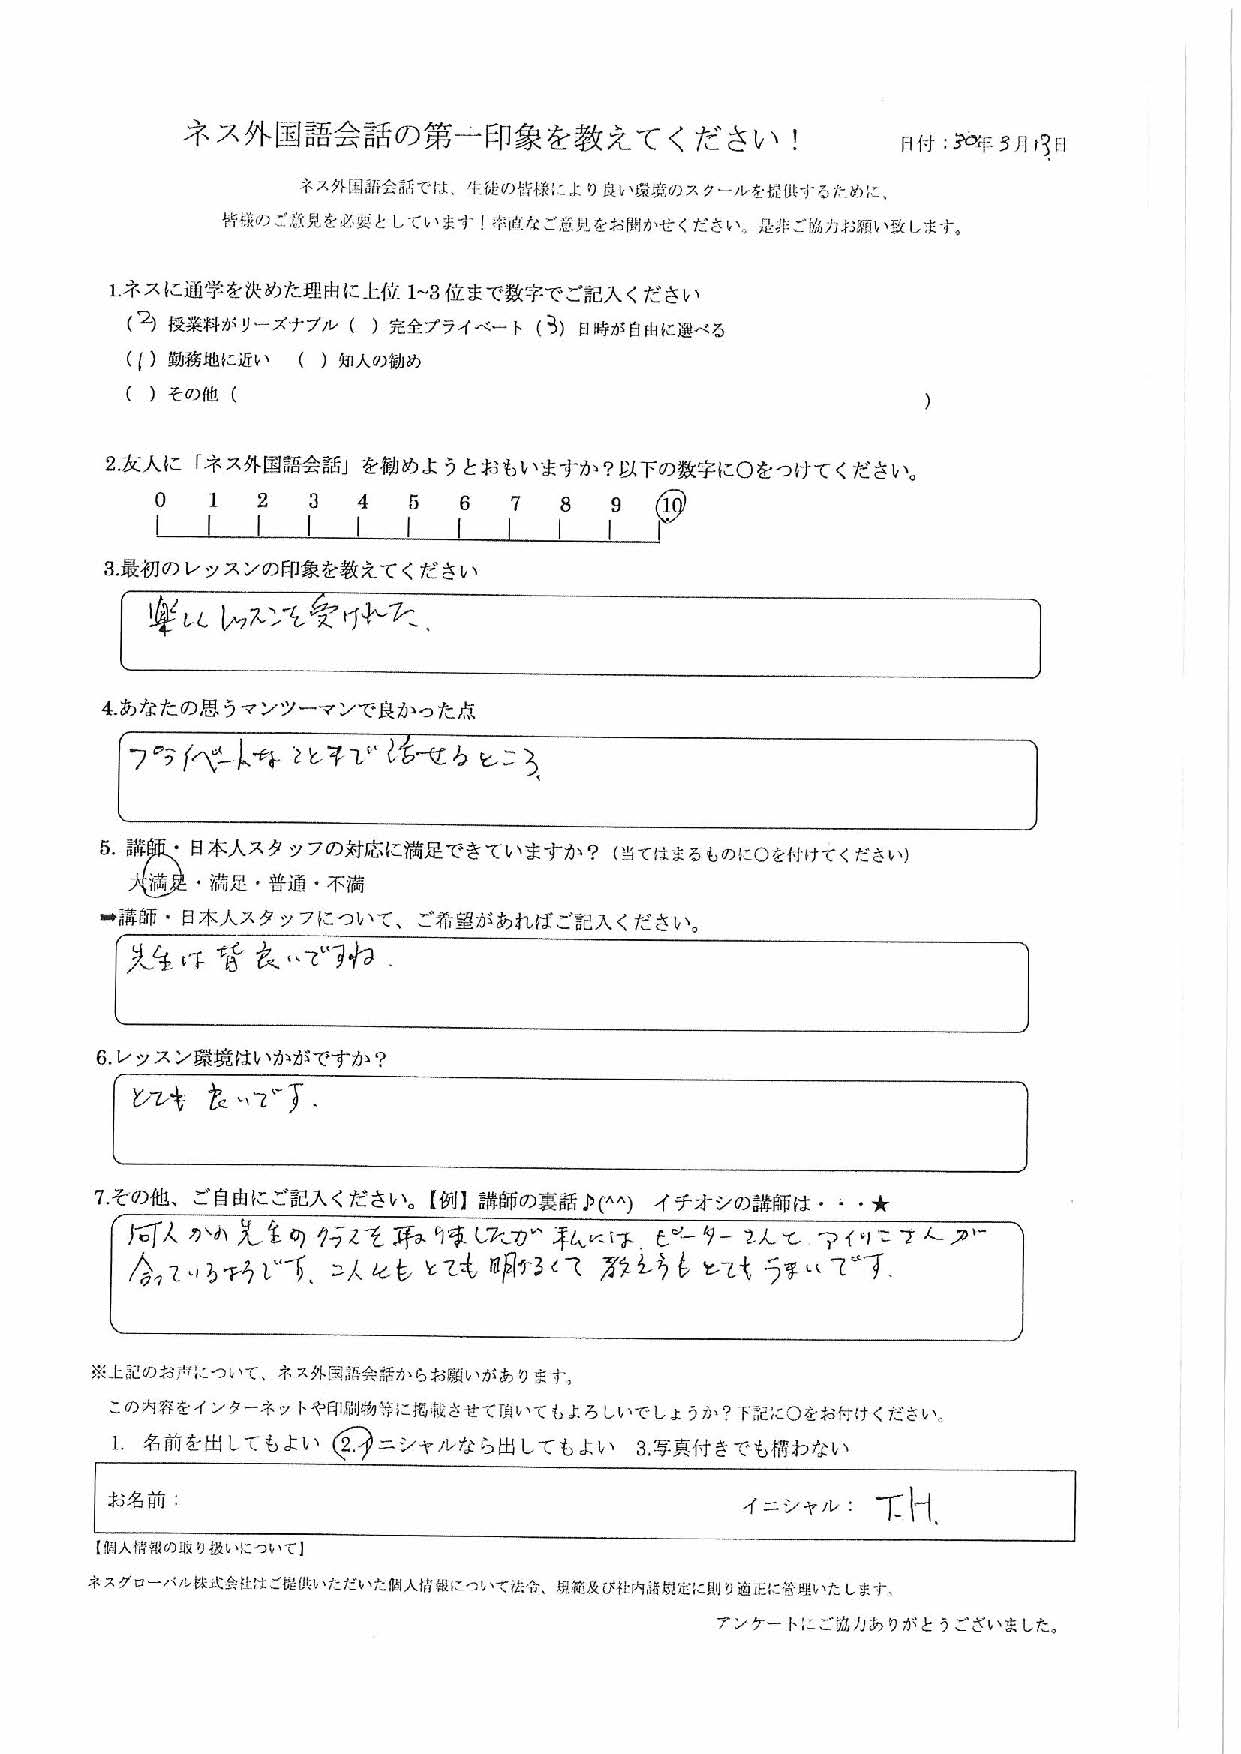 ネス外国語会話の第一印象を教えてください！
日付：30年3月13日
ネス外国語会話では、生徒の皆様により良い環境のスクールを提供するために、
皆様のご意見を必要としています！率直なご意見をお聞かせください。是非ご協力お願い致します。
1.ネスに通学を決めた理由に上位1~3位まで数字でご記入ください
（2）授業料がリーズナブル（ ）完全プライベート（3）日時が自由に選べる
（1）勤務地に近い （ ）知人の勧め
（ ）その他（ ）
2.友人に「ネス外国語会話」を勧めようとおもいますか？以下の数字に〇をつけてください。
0 1 2 3 4 5 6 7 8 9 10
3.最初のレッスンの印象を教えてください
楽しくレッスンを受けれた。
4.あなたの思うマンツーマンで良かった点
プライベートなことまで話せるところ。
5. 講師・日本人スタッフの対応に満足できていますか？（当てはまるものに〇を付けてください）
大満足・満足・普通・不満
➡講師・日本人スタッフについて、ご希望があればご記入ください。
先生は皆良いですね.
6.レッスン環境はいかがですか？
とても良いです.
7.その他、ご自由にご記入ください。【例】講師の裏話♪(^^) イチオシの講師は・・・★
何人かの先生のクラスを取りましたが私には、ピーターさんと、アイリーンさんが
合っているようです、二人ともとても明るくて教え方もとてもうまいです.
※上記のお声について、ネス外国語会話からお願いがあります。
この内容をインターネットや印刷物等に掲載させて頂いてもよろしいでしょうか？下記に〇をお付けください。
1. 名前を出してもよい 2.イニシャルなら出してもよい 3.写真付きでも構わない
お名前： イニシャル： T.H.
【個人情報の取り扱いについて】
ネスグローバル株式会社はご提供いただいた個人情報について法令、規範及び社内諸規定に則り適正に管理いたします。
アンケートにご協力ありがとうございました。